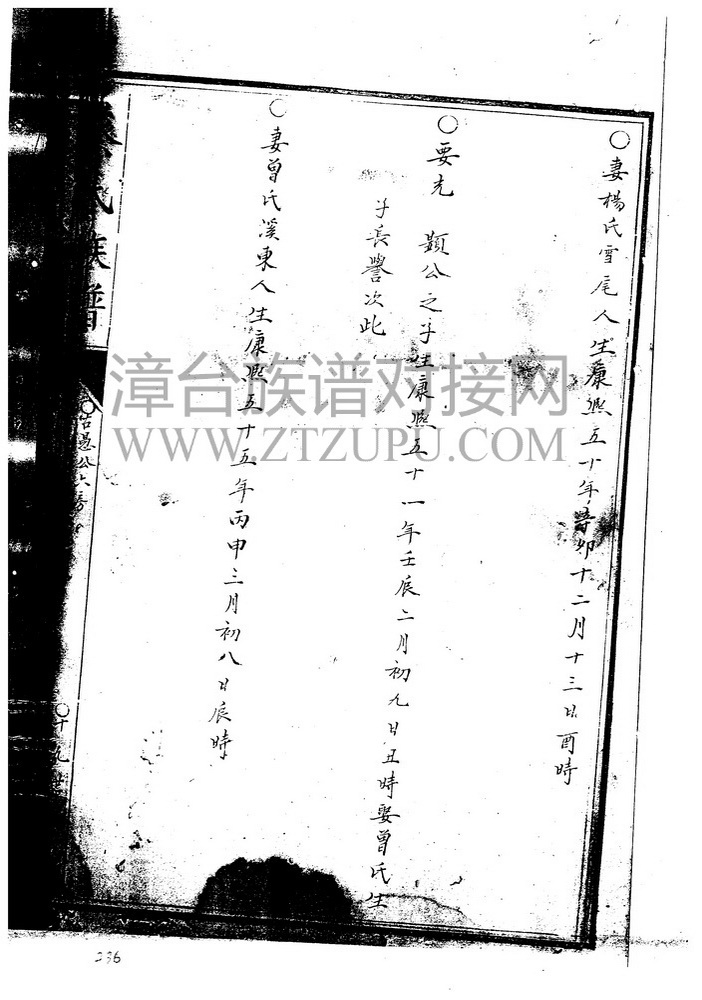 ○妻楊氏雪尾人生康熙五十年卯十二月十三日酉時
○要先　顯公之子生康熙五十一年壬辰二月初九日丑時娶曾氏生
子長譽次此
○妻曾氏溪東人生康熙五十五年丙申三月初八日辰時
氏族譜
○古愚公六房
○十九世
漳台族谱对接网
WWW.ZTZUPU.COM
236